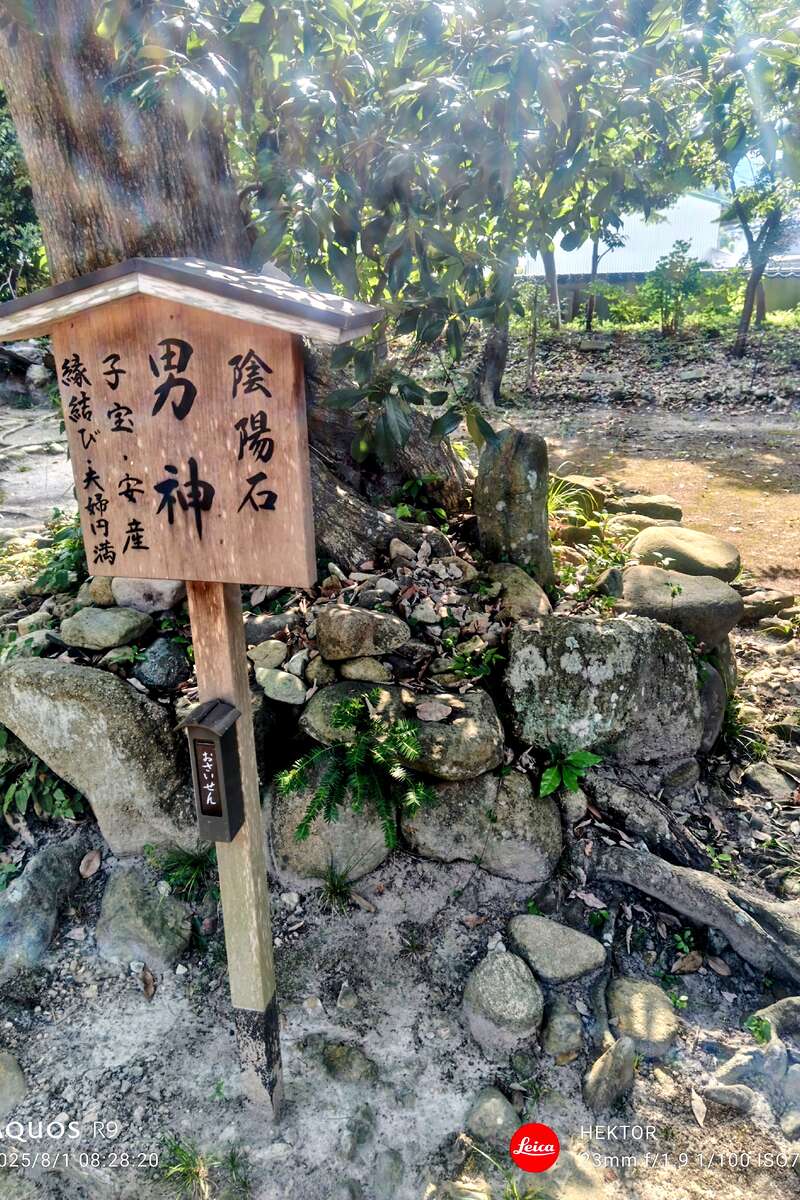 陰陽石
男神
子宝・安産
縁結び・夫婦円満
おさいせん
AQUOS R9
2025/8/1 08:28:20
Leica
HEKTOR
23mm f/1.9 1/100 ISO7